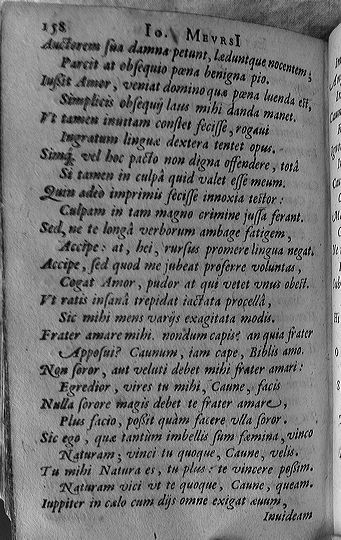 158 IO. MEVRSI
Auctorem sua damna petunt, læduntque nocentem;
Parcit at obsequio pœna benigna pio.
Iussit Amor, veniat domino quæ pœna luenda est,
Simplicis obsequij laus mihi danda manet.
Vt tamen inuitam constet fecisse, rogaui
Ingratum linguæ dextera tentet opus.
Simq́; vel hoc pacto non digna offendere, totâ
Si tamen in culpâ quid valet esse meum.
Quin adeo imprimis fecisse innoxia testor:
Culpam in tam magno crimine jussa ferant.
Sed, ne te longâ verborum ambage fatigem,
Accipe: at, hei, rursus promere lingua negat.
Accipe, sed quod me jubeat proferre voluntas,
Cogat Amor, pudor at qui vetet vnus obest.
Vt ratis insanâ trepidat iactata procellâ,
Sic mihi mens varijs exagitata modis.
Frater amare mihi. nondum capis? an quia frater
Apposui? Caunum, iam cape, Biblis amo.
Non soror, aut veluti debet mihi frater amari:
Egredior, vires tu mihi, Caune, facis
Nulla sorore magis debet te frater amare,
Plus facio, possit quàm facere vlla soror.
Sic ego, quæ tantùm imbellis sum fœmina, vinco
Naturam; vinci tu quoque, Caune, velis.
Tu mihi Natura es, tu plus: te vincere possim.
Naturam vici vt te quoque, Caune, queam.
Iuppiter in cælo cum dijs omne exigat æuum,
Inuideam